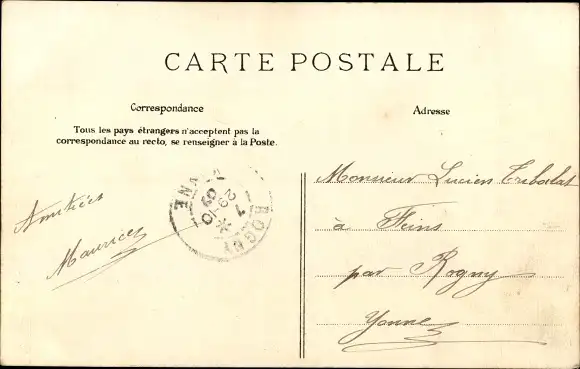 CARTE POSTALE
Correspondance
Tous les pays étrangers n'acceptent pas la
correspondance au recto, se renseigner à la Poste.
Adresse
Amitiés
Maurice
ROGNY
YONNE
09
Monsieur Lucien Tribalat
à Feins
par Rogny
Yonne